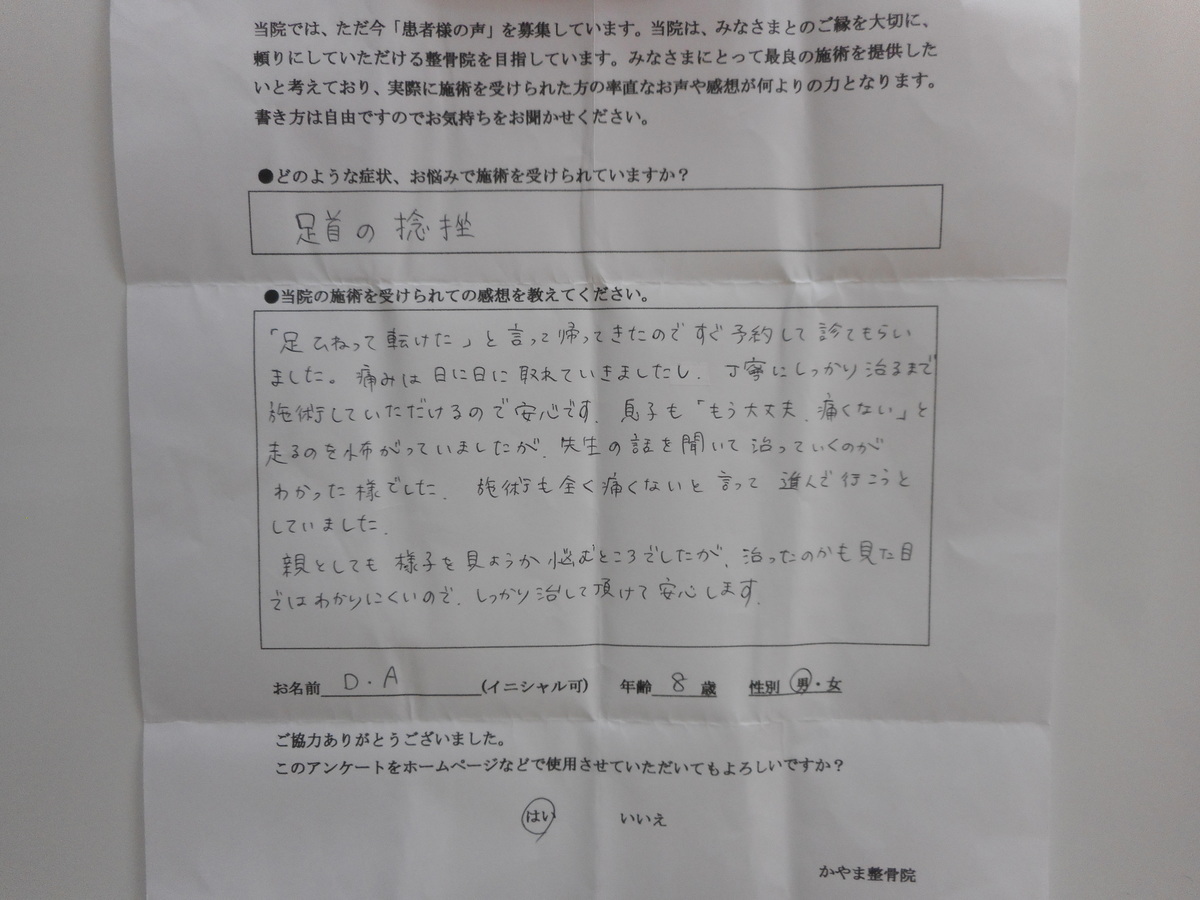 当院では、ただ今「患者様の声」を募集しています。当院は、みなさまとのご縁を大切に、
頼りにしていただける整骨院を目指しています。みなさまにとって最良の施術を提供した
いと考えており、実際に施術を受けられた方の率直なお声や感想が何よりの力となります。
書き方は自由ですのでお気持ちをお聞かせください。
●どのような症状、お悩みで施術を受けられていますか？
足首の捻挫
●当院の施術を受けられての感想を教えてください。
「足ひねって転けた」と言って帰ってきたのですぐ予約して診てもらい
ました。痛みは日に日に取れていきましたし、丁寧にしっかり治るまで
施術していただけるので安心です。息子も「もう大丈夫、痛くない」と
走るのを怖がっていましたが、先生の話を聞いて治っていくのが
わかった様でした。施術も全く痛くないと言って進んで行こうと
していました。
親としても様子を見ようか悩むところでしたが、治ったのかも見た目
ではわかりにくいので、しっかり治して頂けて安心します。
お名前 D.A (イニシャル可) 年齢 8 歳 性別 男・女
ご協力ありがとうございました。
このアンケートをホームページなどで使用させていただいてもよろしいですか？
はい いいえ
かやま整骨院